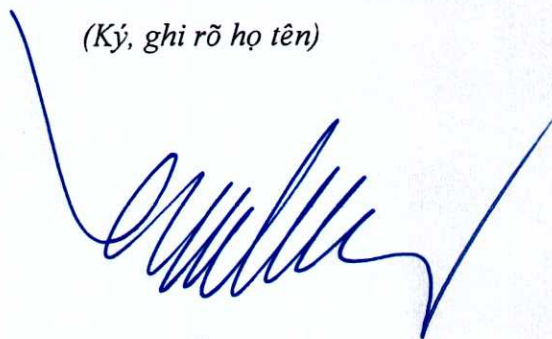 (Ký, ghi rõ họ tên)